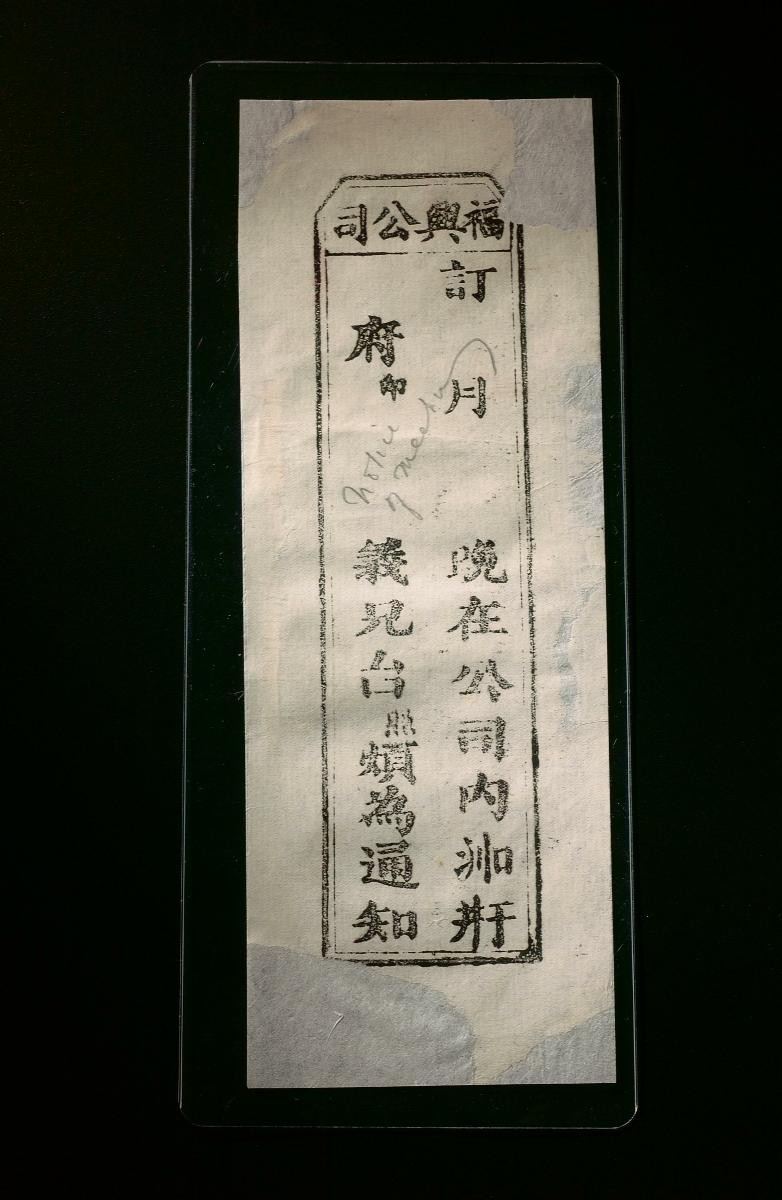 福興公司
訂 月 晚在公司内
府印 義兄台照煩為通知
Notice
of meeting